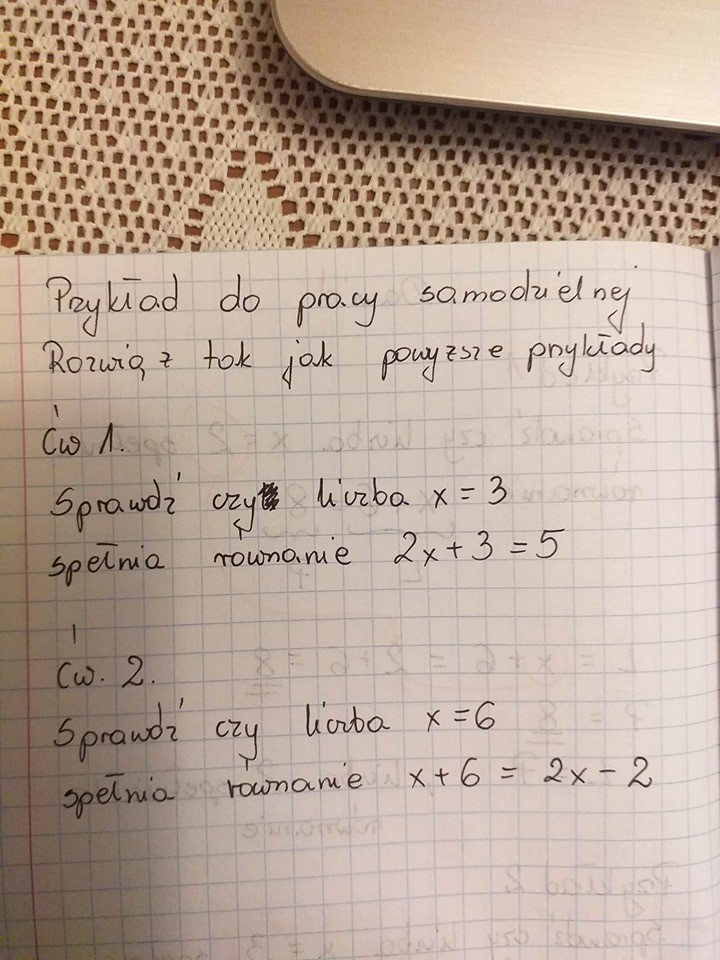 Przykład do pracy samodzielnej
Rozwiąż tak jak powyższe przykłady
Ćw 1.
Sprawdź czy liczba x = 3
spełnia równanie 2x + 3 = 5
Ćw. 2.
Sprawdź czy liczba x = 6
spełnia równanie x + 6 = 2x - 2